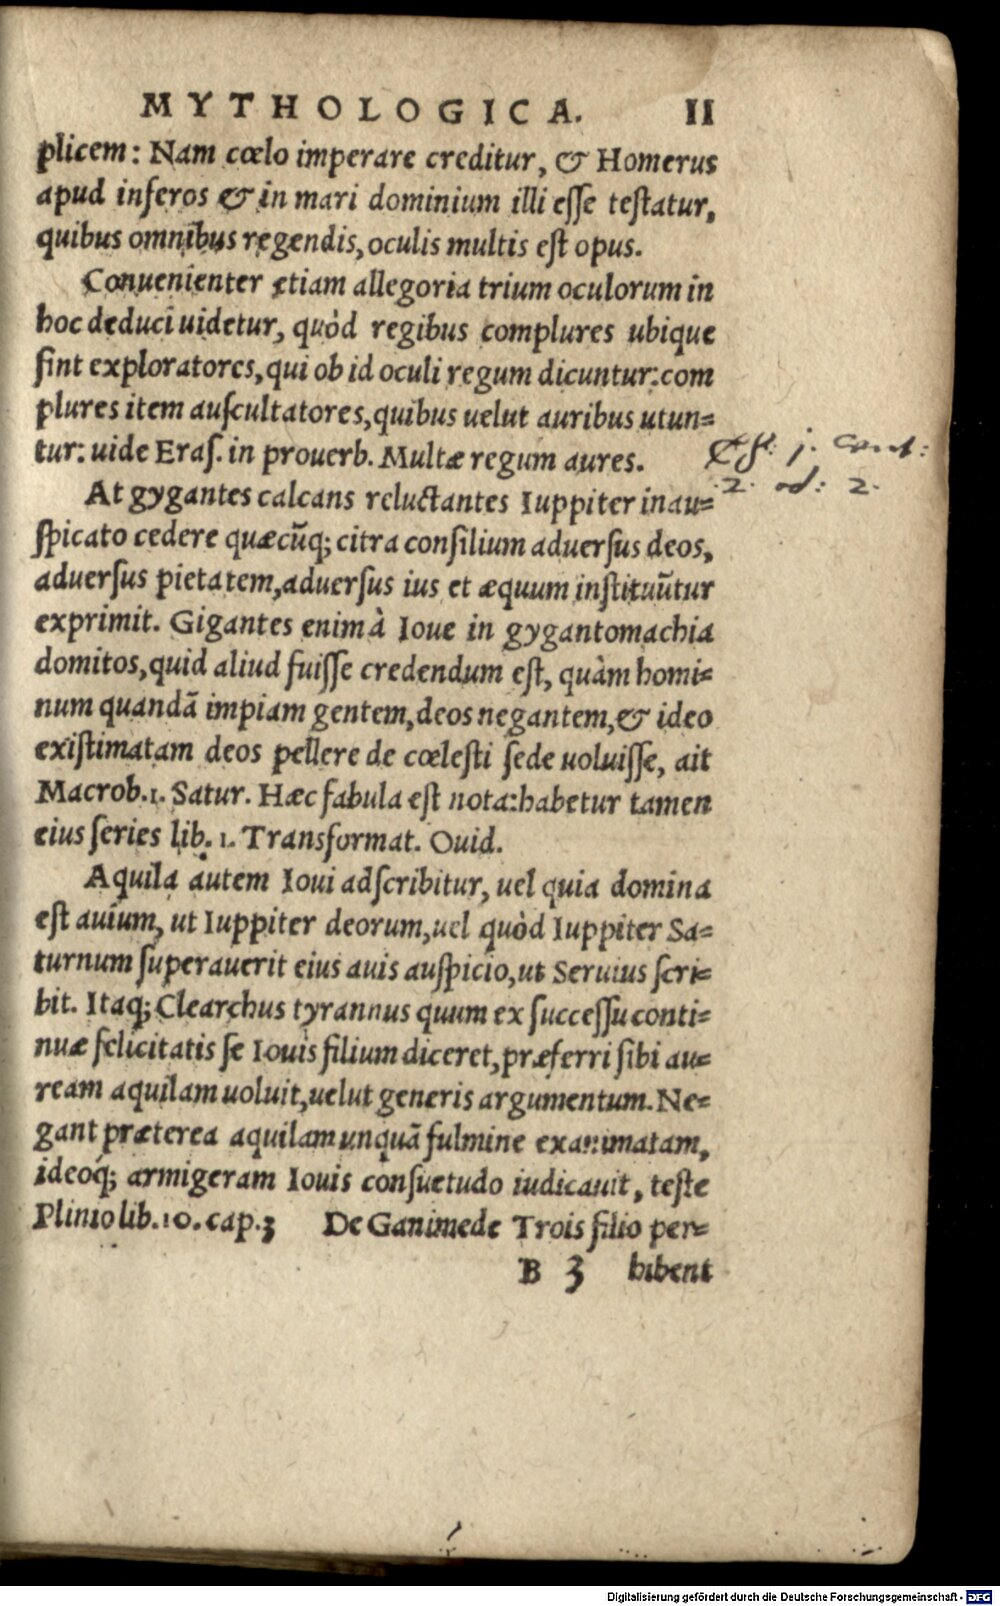 MYTHOLOGICA. II
plicem: Nam cœlo imperare creditur, & Homerus
apud inferos & in mari dominium illi esse testatur,
quibus omnibus regendis, oculis multis est opus.
Conuenienter etiam allegoria trium oculorum in
hoc deduci uidetur, quòd regibus complures ubique
sint exploratores, qui ob id oculi regum dicuntur: com
plures item auscultatores, quibus uelut auribus utun=
tur: uide Eras. in prouerb. Multæ regum aures.
At gygantes calcans reluctantes Iuppiter inau=
spicato cedere quæcũq; citra consilium aduersus deos,
aduersus pietatem, aduersus ius et æquum instituũtur
exprimit. Gigantes enim à Ioue in gygantomachia
domitos, quid aliud fuisse credendum est, quàm homi=
num quandã impiam gentem, deos negantem, & ideo
existimatam deos pellere de cœlesti sede uoluisse, ait
Macrob. 1. Satur. Hæc fabula est nota: habetur tamen
eius series lib. 1. Transformat. Ouid.
Aquila autem Ioui adscribitur, uel quia domina
est auium, ut Iuppiter deorum, uel quòd Iuppiter Sa=
turnum superauerit eius auis auspicio, ut Seruius scri=
bit. Itaq; Clearchus tyrannus quum ex successu conti=
nuæ felicitatis se Iouis filium diceret, præferri sibi au=
ream aquilam uoluit, uelut generis argumentum. Ne=
gant præterea aquilam unquã fulmine exanimatam,
ideoq́; armigeram Iouis consuetudo iudicauit, teste
Plinio lib. 10. cap. 3 De Ganimede Trois filio per=
B 3 hibent
j.
2. od: 2.
Digitalisierung gefördert durch die Deutsche Forschungsgemeinschaft - DFG